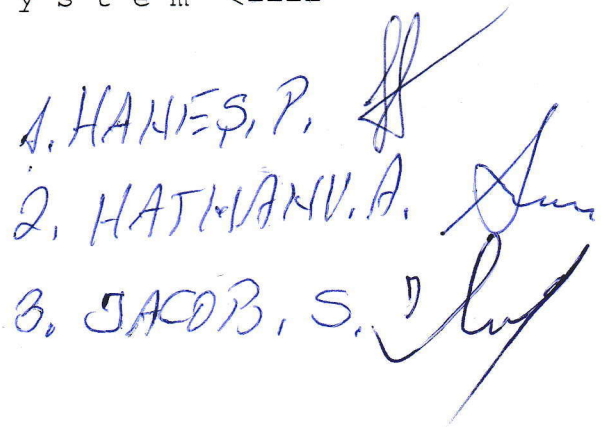 y s t e m <----
1. HANEȘ, P.
2. HATHVANU. A.
3. JACOB, S.